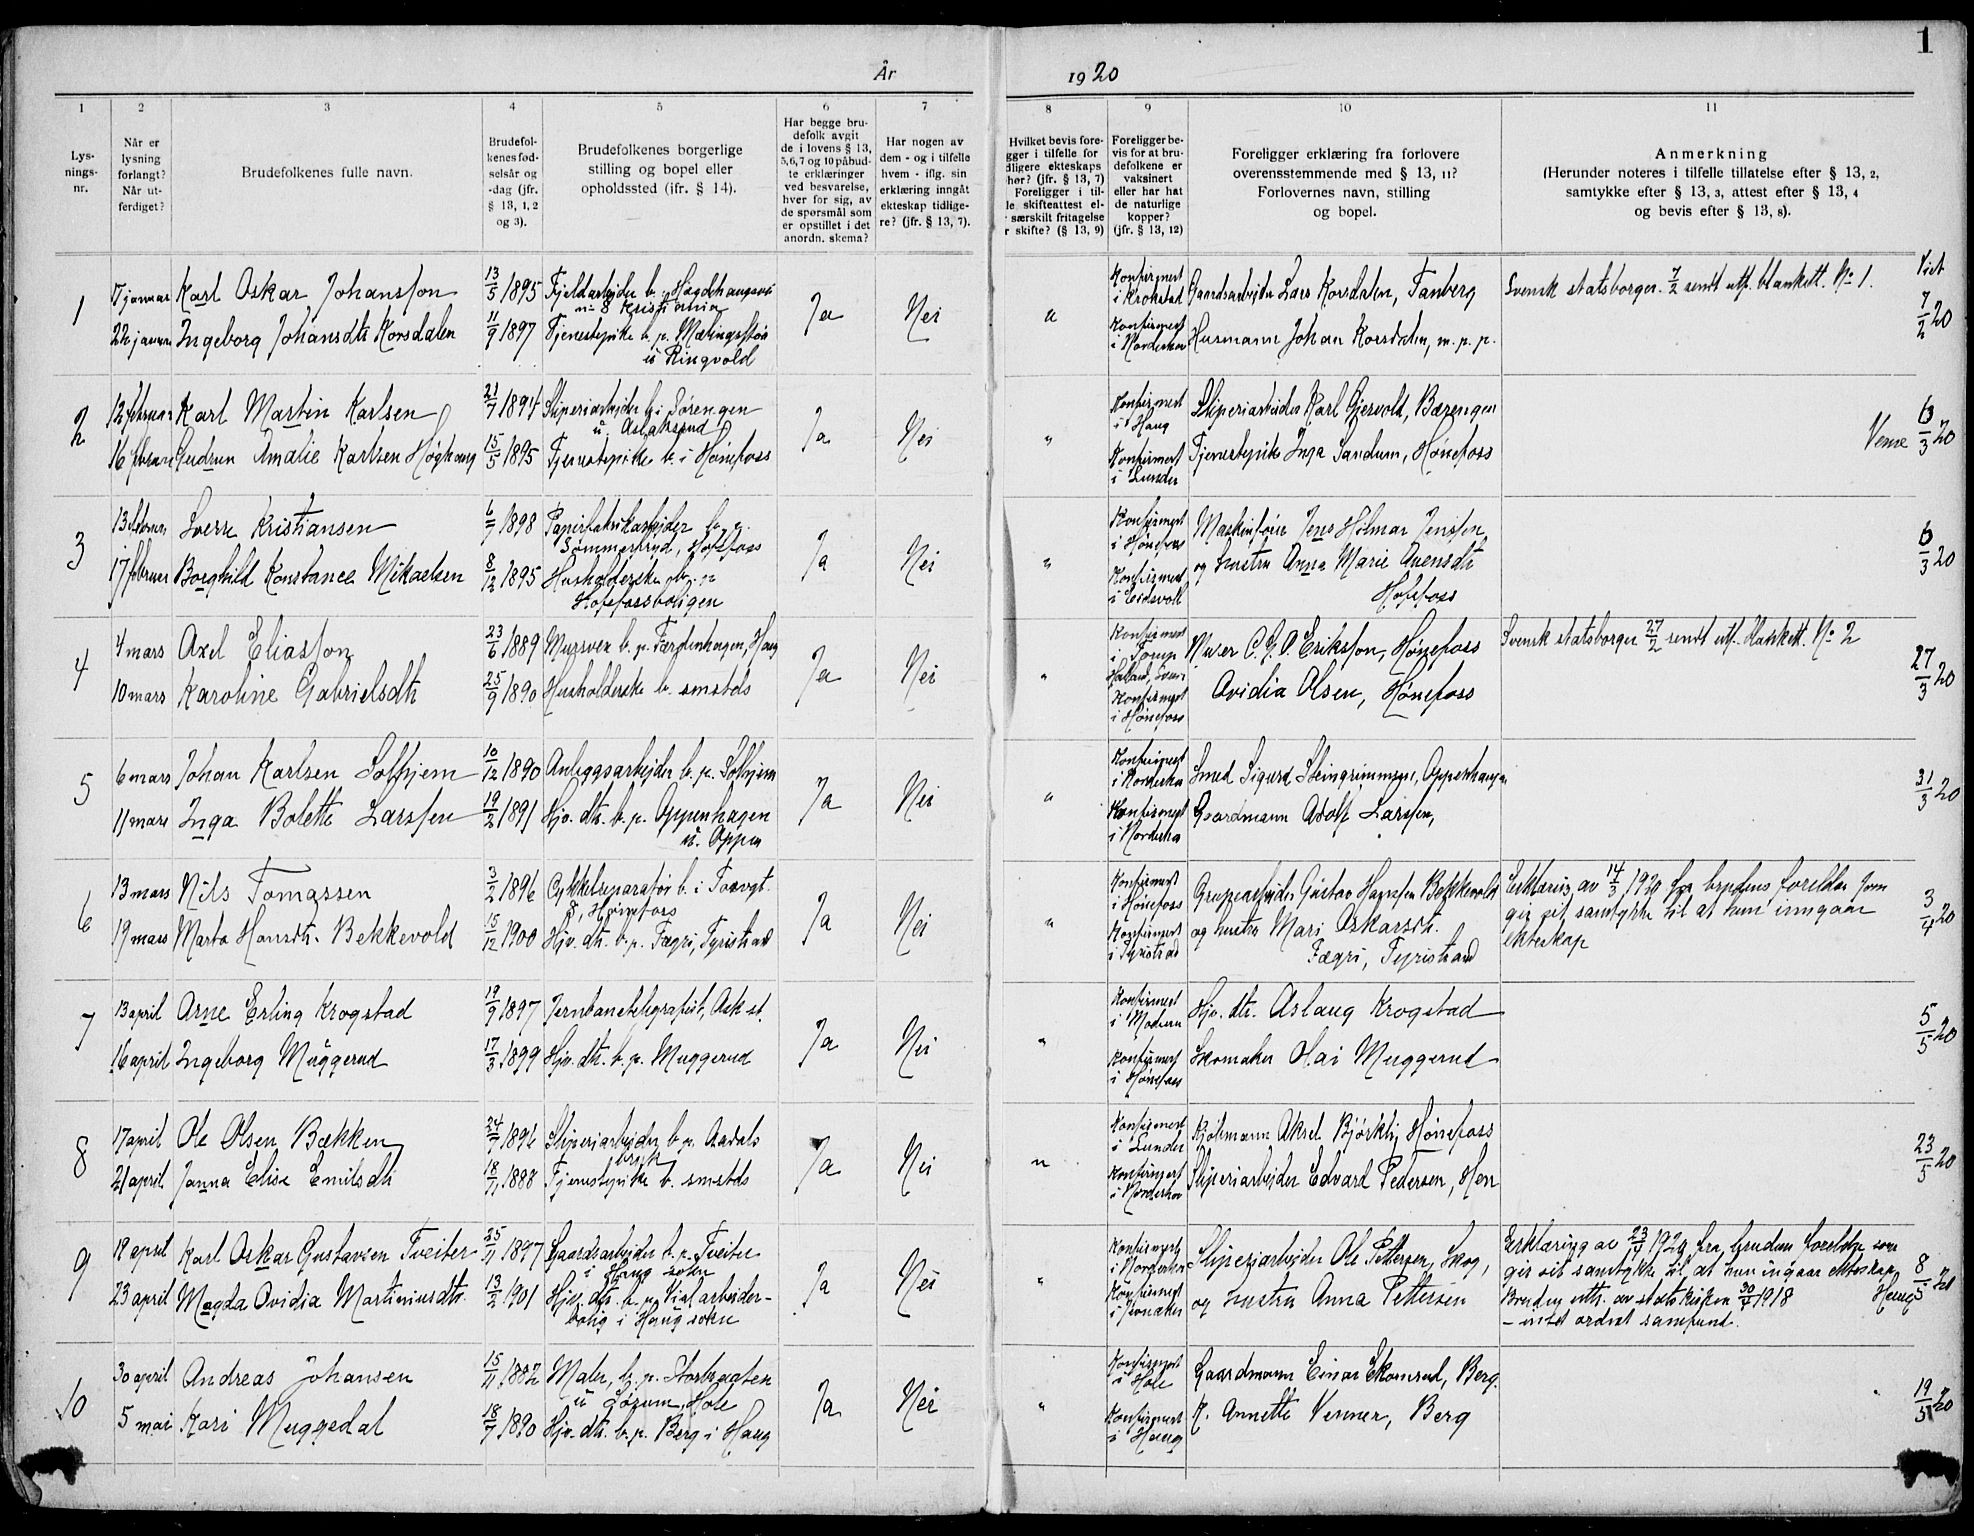 1
År
1920
1
2
3
4
5
6
7
8
9
10
11
Lys-
nings-
nr.
Når er
lysning
forlangt?
Når ut-
ferdiget?
Brudefolkenes fulle navn.
Brudefol-
kenes fød-
selsår og
-dag (jfr.
§ 13, 1, 2
og 3).
Brudefolkenes borgerlige
stilling og bopel eller
opholdssted (jfr. § 14).
Har begge bru-
defolk avgit
de i lovens § 13,
5, 6, 7 og 10 påbud-
te erklæringer
ved besvarelse,
hver for sig, av
de spørsmål som
er opstillet i det
anordn. skema?
Har nogen av
dem - og i tilfelle
hvem - iflg. sin
erklæring inngått
ekteskap tidlige-
re? (jfr. § 13, 7).
Hvilket bevis fore-
gger i tilfelle for
dligere ekteskaps
hør? (jfr. § 13, 7)
Foreligger i til-
le skifteattest el-
særskilt fritagelse
r skifte? (§ 13, 9)
Foreligger be-
vis for at bru-
defolkene er
vaksinert
eller har hat
de naturlige
kopper?
(jfr. § 13, 12)
Foreligger erklæring fra forlovere
overensstemmende med § 13, 11?
Forlovernes navn, stilling
og bopel.
Anmerkning
(Herunder noteres i tilfelle tillatelse efter § 13, 2,
samtykke efter § 13, 3, attest efter § 13, 4
og bevis efter § 13, 8).
Viet
1
17 januar Karl Oskar Johansson 13/5 1895 Fjeldarbeider b. Hægdehaugsvei
n: 8 Kristiania
22 januar Ingeborg Johansdtr Korsdalen 11/9 1897 Tjenestepike b. p.
u Ringvold
Ja Nei "
Konfirmert
i Krokstad
Konfirmert
i Norderhov
Gaardsarbeider Lars Korsdalen, Tanberg
Husmann Johan Korsdalen, m. p. p.
Svensk statsborger. 7/2 sendt utf. blankett. No 1.
7/2 20
2
12 februar Karl Martin Karlsen 21/7 1894 Sliperiarbeider b. i Sørengen
u. Aslaksrud
16 februar Gudrun Amalie Karlsen Høghaug 15/5 1895 Tjenestepike b. i Hønefoss
Ja Nei "
Konfirmert
i Haug
Konfirmert
i Lunder
Sliperiarbeider Karl Gjervold, Bærengen
Tjenestepike Inga Sandum, Hønefoss
Venne 6/3 20
3
13 februar Sverre Kristiansen 6/7 1898 Papirfabrikarbeider b. p.
Sommerfryd, Hofsfoss
17 februar Borghild Konstance Mikaelsen 8/12 1895 Husholderske b. p.
Hofsfossboligen
Ja Nei "
Konfirmert
i Hønefoss
Konfirmert
i Eidsvoll
Maskinfører Jens Hilmar Jenssen
og hustru Anna Marie Avensdtr
Hofsfoss
6/3 20
4
4 mars Axel Eliasson 23/6 1889 Mursven b. p. Færdenhagen, Haug
10 mars Karoline Gabrielsdtr 25/9 1890 Husholderske b. smstds
Ja Nei "
Konfirmert
i Torup
Halland, Sver.
Konfirmert
i Hønefoss
Murer C. J. A. Eriksson, Hønefoss
Ovidia Olsen, Hønefoss
Svensk statsborger 27/2 sendt utf. blankett. No 2
27/3 20
5
6 mars Johan Karlsen Solhjem 10/12 1890 Anleggsarbeider b. p. Solhjem
11 mars Inga Bolette Larssen 19/2 1891 Hjv. dtr. b. p. Oppenhagen
u. Oppen
Ja Nei "
Konfirmert
i Norderhov
Konfirmert
i Norderhov
Smed Sigurd Steingrimmsen, Oppenhagen
Gaardmann Adolf Larssen,
31/3 20
6
13 mars Nils Tomassen 3/2 1896 Cykkelreparatør b. i Torvgt.
8, Hønefoss
19 mars Marta Hansdtr. Bekkevold 15/12 1900 Hjv. dtr. b. p. Fægri, Tyristrand
Ja Nei "
Konfirmert
i Hønefoss
Konfirmert
i Tyristrand
Grupearbeider Gustav Hansen Bekkevold
og hustru Mari Oskarsdt.
Fægri, Tyristrand
Erklæring av 14/3 1920 fra brudens forelder som
gir sit samtykke til at hun inngaar
ekteskap
3/4 20
7
13 april Arne Erling Krogstad 19/9 1897 Jernbanetelegrafist, Ask st.
16 april Ingeborg Muggerud 17/3 1899 Hjv. dtr. b. p. Muggerud
Ja Nei "
Konfirmert
i Modum
Konfirmert
i Hønefoss
Hjv. dtr. Aslaug Krogstad
Skomaker Olai Muggerud
5/5 20
8
17 april Ole Olsen Bækken 24/7 1896 Sliperiarbeider b. p. Aadals
bruk
21 april Janna Elise Emilsdtr 18/11 1888 Tjenestepike b. smstds
Ja Nei "
Konfirmert
i Lunder
Konfirmert
i Norderhov
Kjøbmann Aksel Bjørkli, Hønefoss
Sliperiarbeider Edvard Pedersen, Hen
23/5 20
9
19 april Karl Oskar Gustavsen Tveiter 25/11 1897 Gaardsarbeider b. p. Tveiter
i Haug sokn
23 april Magda Ovidia Martiniusdtr. 13/2 1901 Hjv. dtr. b. p. Viul arbeider-
bolig i Haug sokn
Ja Nei "
Konfirmert
i Norderhov
Konfirmert
i Jevnaker
Sliperiarbeider Ole Pettersen, Skog,
og hustru Anna Pettersen
Erklæring av 23/4 1920 fra brudens forelder som
gir sit samtykke til at hun ingaar ekteskap.
Bruden uttr. av statskirken 30/7 1918
- intet ordnet samfund.
Haug 8/5 20
10
30 april Andreas Johansen 15/11 1882 Maler, b. p. Storbraaten
u Løxum, Hole
5 mai Kari Muggedal 18/7 1890 Hjv. dtr. b. p. Berg i Haug
Ja Nei "
Konfirmert
i Hole
Konfirmert
i Haug
Gaardmann Einar Ekornrud, Berg.
K. Annette Venner, Berg
19/5 20